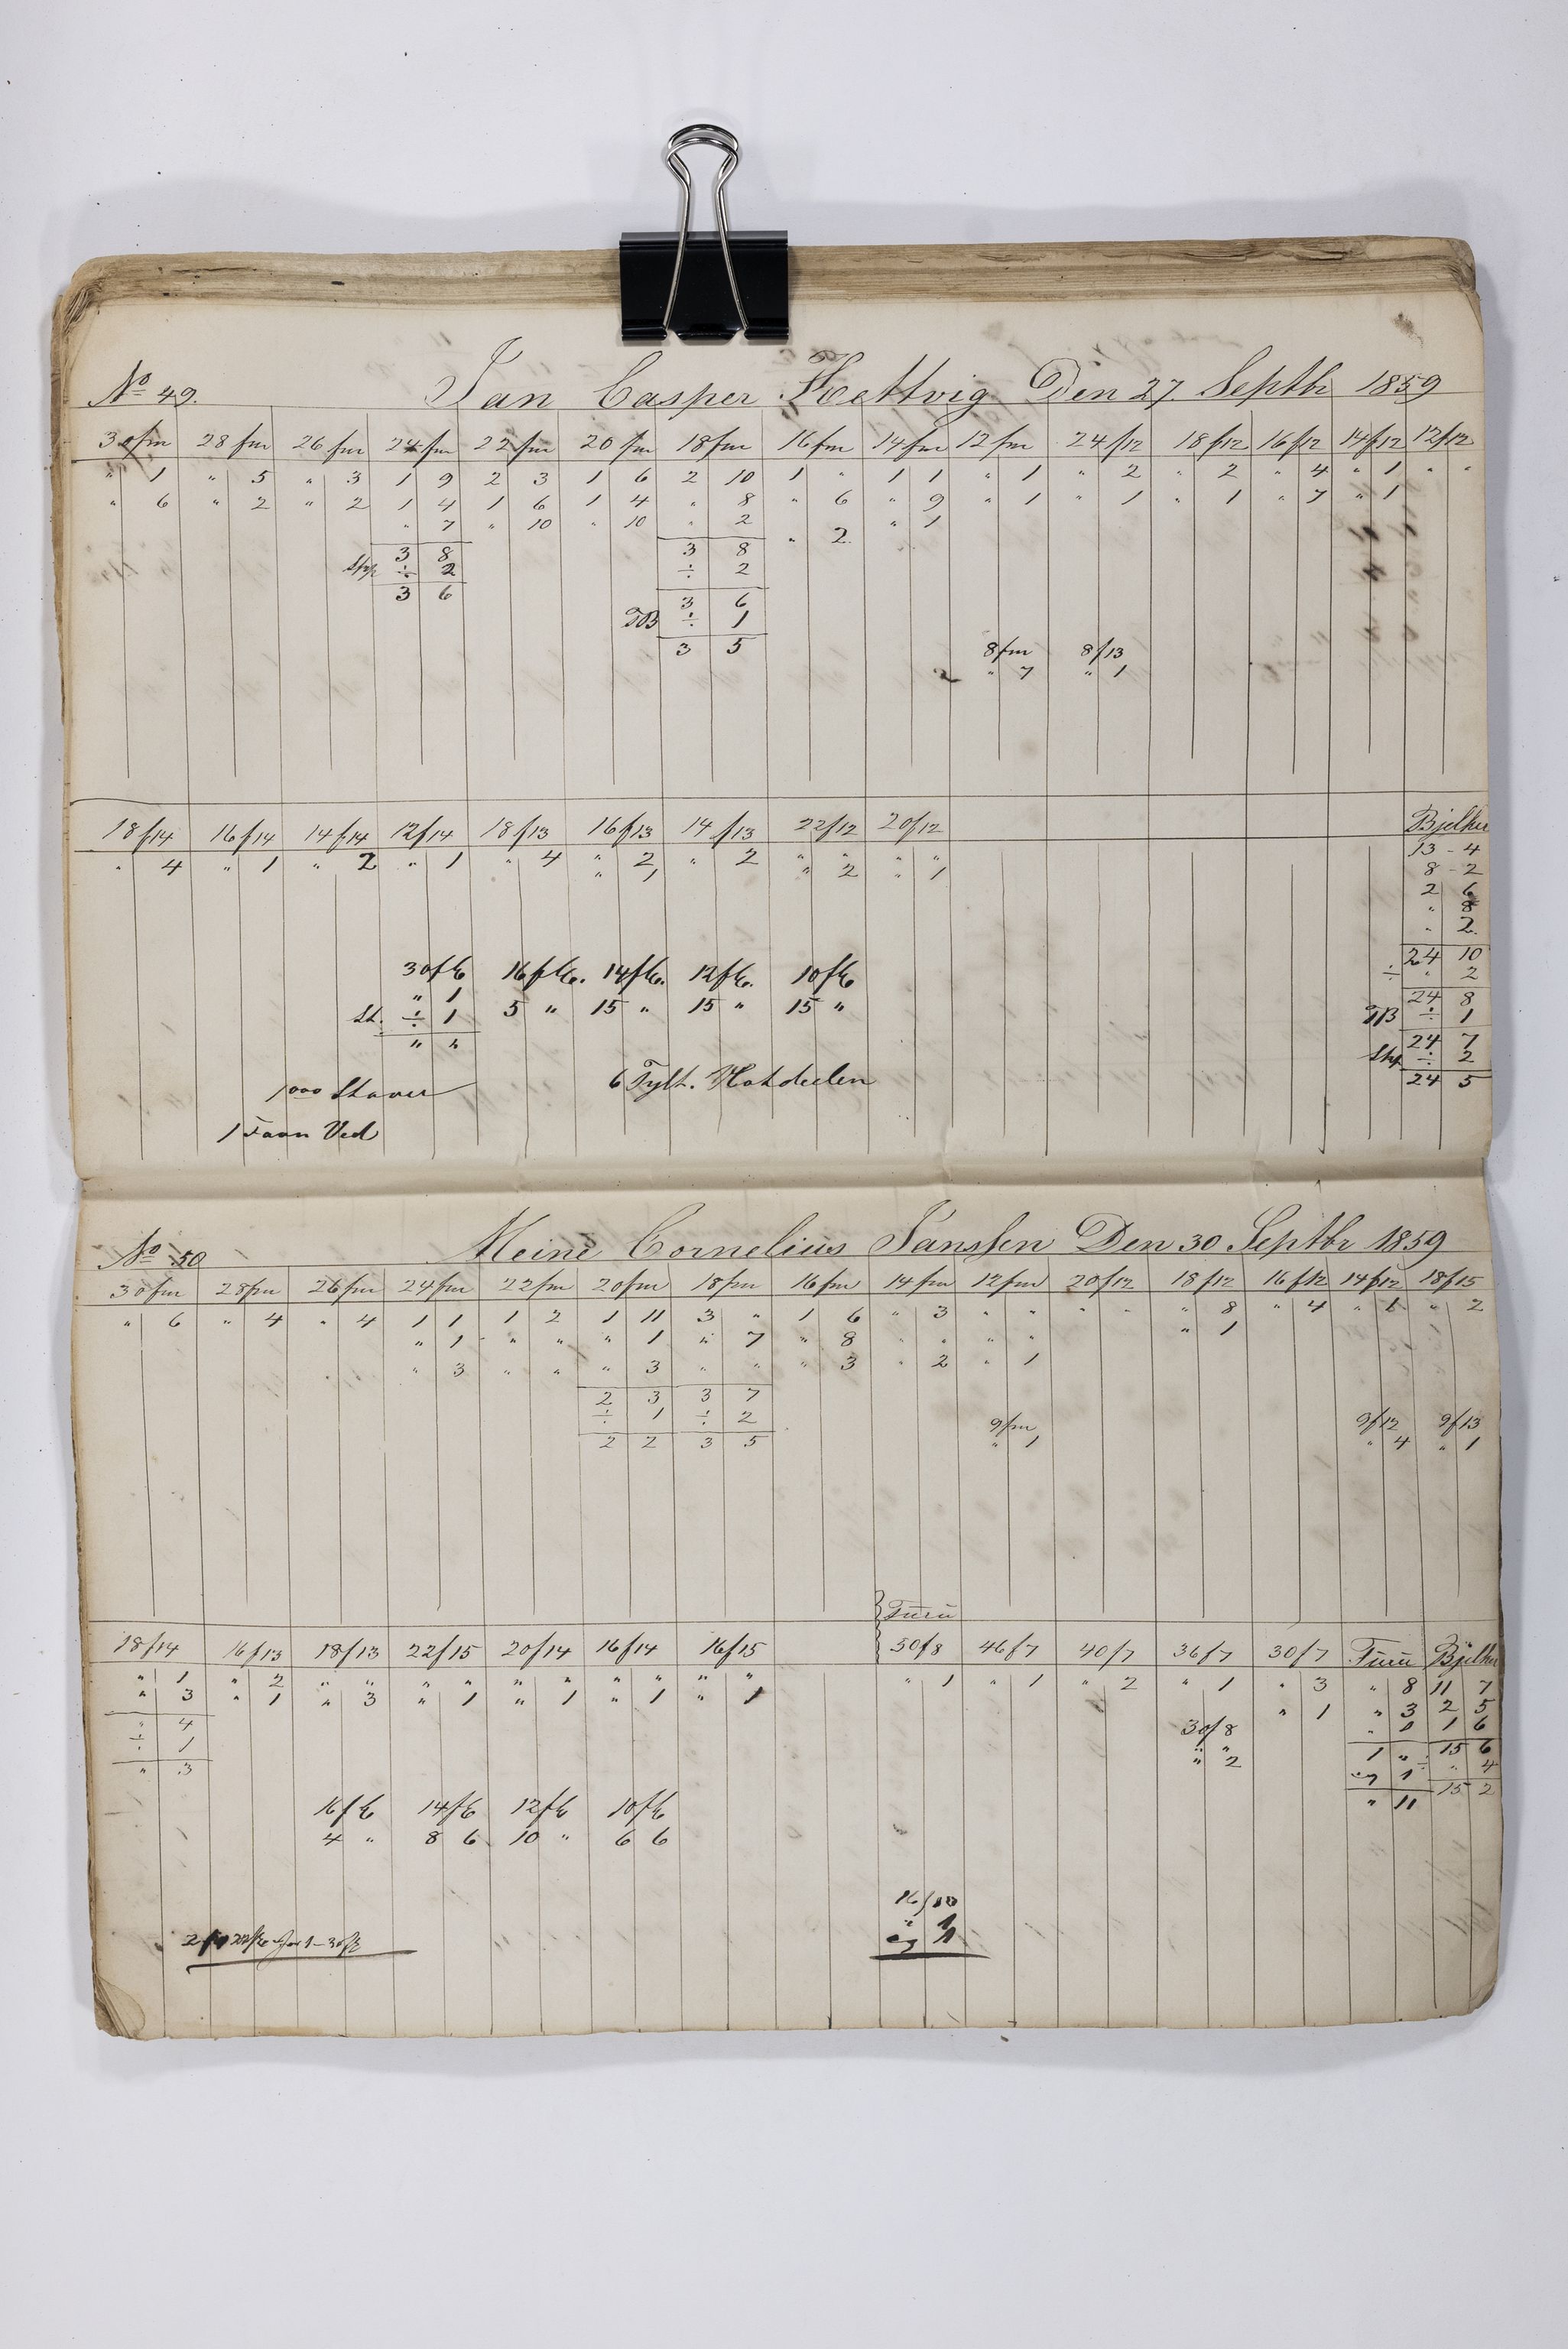 No 49. Jan Casper Hettvig Den 27 Septbr 1859
30 fm 28 fm 26 fm 24 fm 22 fm 20 fm 18 fm 16 fm 14 fm 12 fm 24/12 18/12 16/12 14/12 12/12
" 1 " 5 " 3 1 9 2 3 1 6 2 10 1 " 1 1 " 1 " 2 " 2 " 4 " 1 " "
" 6 " 2 " 2 1 4 1 6 1 4 " 8 " 6 " 9 " 1 " 1 " 1 " 7 " 1
" 7 " 10 " 10 " 2 " 2 " 1
3 8 3 8
÷ 2 ÷ 2
3 6 3 6
÷ 1
3 5
8/fm 8/13
" 7 " 1
18/14 16/14 14/14 12/14 18/13 16/13 14/13 22/12 20/12 Bjelker
" 4 " 1 " 2 " 1 " 4 " 2 " 2 " " " " 13 - 4
" 1 " 2 " 1 8 - 2
2 6
" 8
" 2
24 10
÷ " 2
24 8
÷ 1
24 7
÷ 2
24 5
30f6 16f6. 14f6. 12f6. 10f6
" 1
St. ÷ 1 5 " 15 " 15 " 15 "
" "
1000 Staver 6 Tylt. Hotdeelen
1 Favn Ved
No 50 Meine Cornelius Janssen Den 30 Septbr 1859
30 fm 28 fm 26 fm 24 fm 22 fm 20 fm 18 fm 16 fm 14 fm 12 fm 20/12 18/12 16/12 14/12 18/15
" 6 " 4 " 4 1 1 1 2 1 11 3 " 1 6 " 3 " " " " " 8 " 4 " 1 " 2
" 1 " " " 1 " 7 " 8 " " " " " 1
" 3 " " " 3 " " " 3 " 2 " 1
2 3 3 7
÷ 1 ÷ 2
2 2 3 5
9/fm 9/12 9/13
" 1 " 4 " 1
Furu
18/14 16/13 18/13 22/15 20/14 16/14 16/15 50/8 46/7 40/7 36/7 30/7 Furu Bjelker
" 1 " 2 " " " " " " " " " " " 1 " 1 " 2 " 1 " 3 " 8 11 7
" 3 " 1 " 3 " 1 " 1 " 1 " 1 " 1 " 3 2 5
" 4 30/8 " 1 1 6
÷ 1 " " 1 " 15 6
" 3 " 2 1 ÷ " 4
" 11 15 2
16f6 14f6 12f6 10f6
4 " 8 6 10 " 6 6
16/10